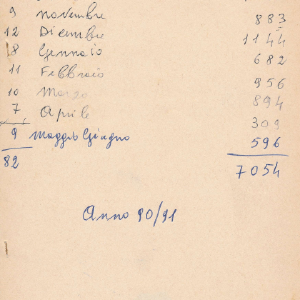 9 Novembre 883
12 Dicembre 1144
8 Gennaio 682
11 Febbraio 956
10 Marzo 894
7 Aprile 309
9 Maggio Giugno 596
82 7054
Anno 90/91